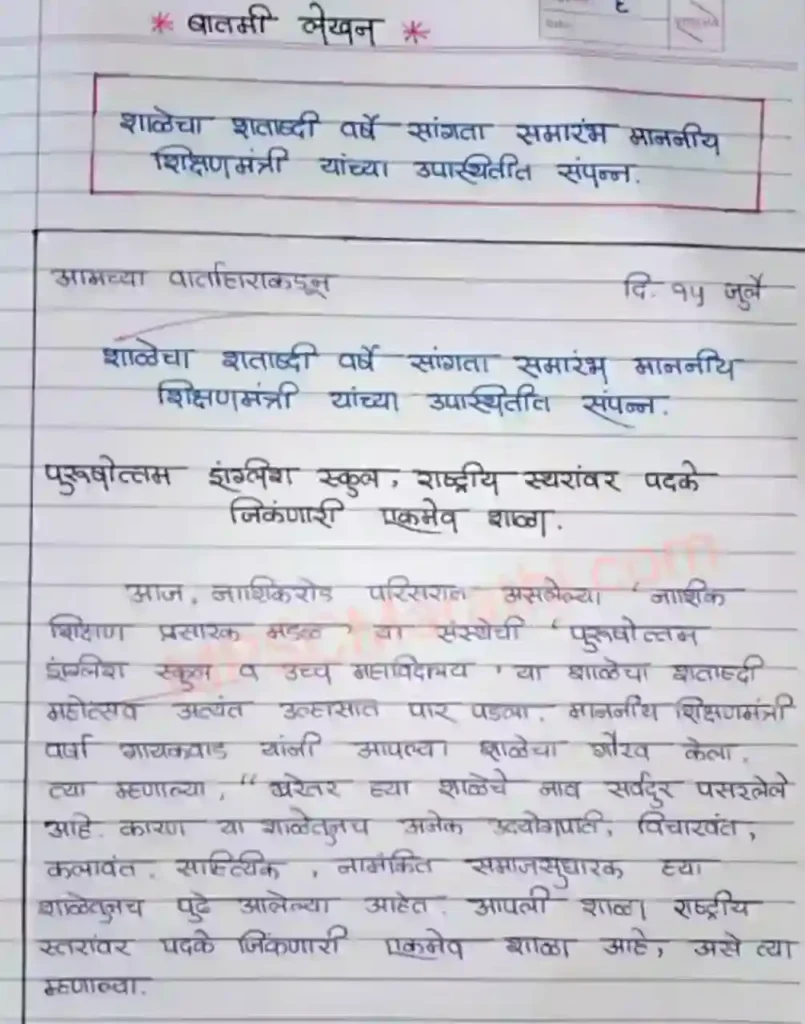 * बातमी लेखन *
६
शाळेचा शताब्दी वर्षे सांगता समारंभ माननीय
शिक्षणमंत्री यांच्या उपास्थितीत संपन्न.
आमच्या वार्ताहाराकडून दि. १५ जुलै
शाळेचा शताब्दी वर्षे सांगता समारंभ माननीय
शिक्षणमंत्री यांच्या उपास्थितीत संपन्न.
पुरूषोत्तम इंग्लिश स्कुल, राष्ट्रीय स्थरांवर पदके
जिकंणारी एकमेव शाळा.
आज, नाशिकरोड परिसरात असलेल्या 'नाशिक
शिक्षण प्रसारक मंडळ' या संस्थेची 'पुरूषोत्तम
इंग्लिश स्कुल व उच्च महाविद्यालय' या शाळेचा शताब्दी
महोत्सव अत्यंत उल्हासात पार पडला. माननीय शिक्षणमंत्री
वर्षा गायकवाड यांनी आपल्या शाळेचा गौरव केला.
त्या म्हणाल्या, "खरेतर ह्या शाळेचे नाव सर्वदुर पसरलेले
आहे. कारण या शाळेतुनच अनेक उदयोगपती, विचारवंत,
कलावंत, साहित्यिक, नामांकित समाजसुधारक ह्या
शाळेतुनच पुढे आलेल्या आहेत. आपली शाळा राष्ट्रीय
स्तरांवर पदके जिंकणारी एकमेव शाळा आहे, असे त्या
म्हणाल्या.